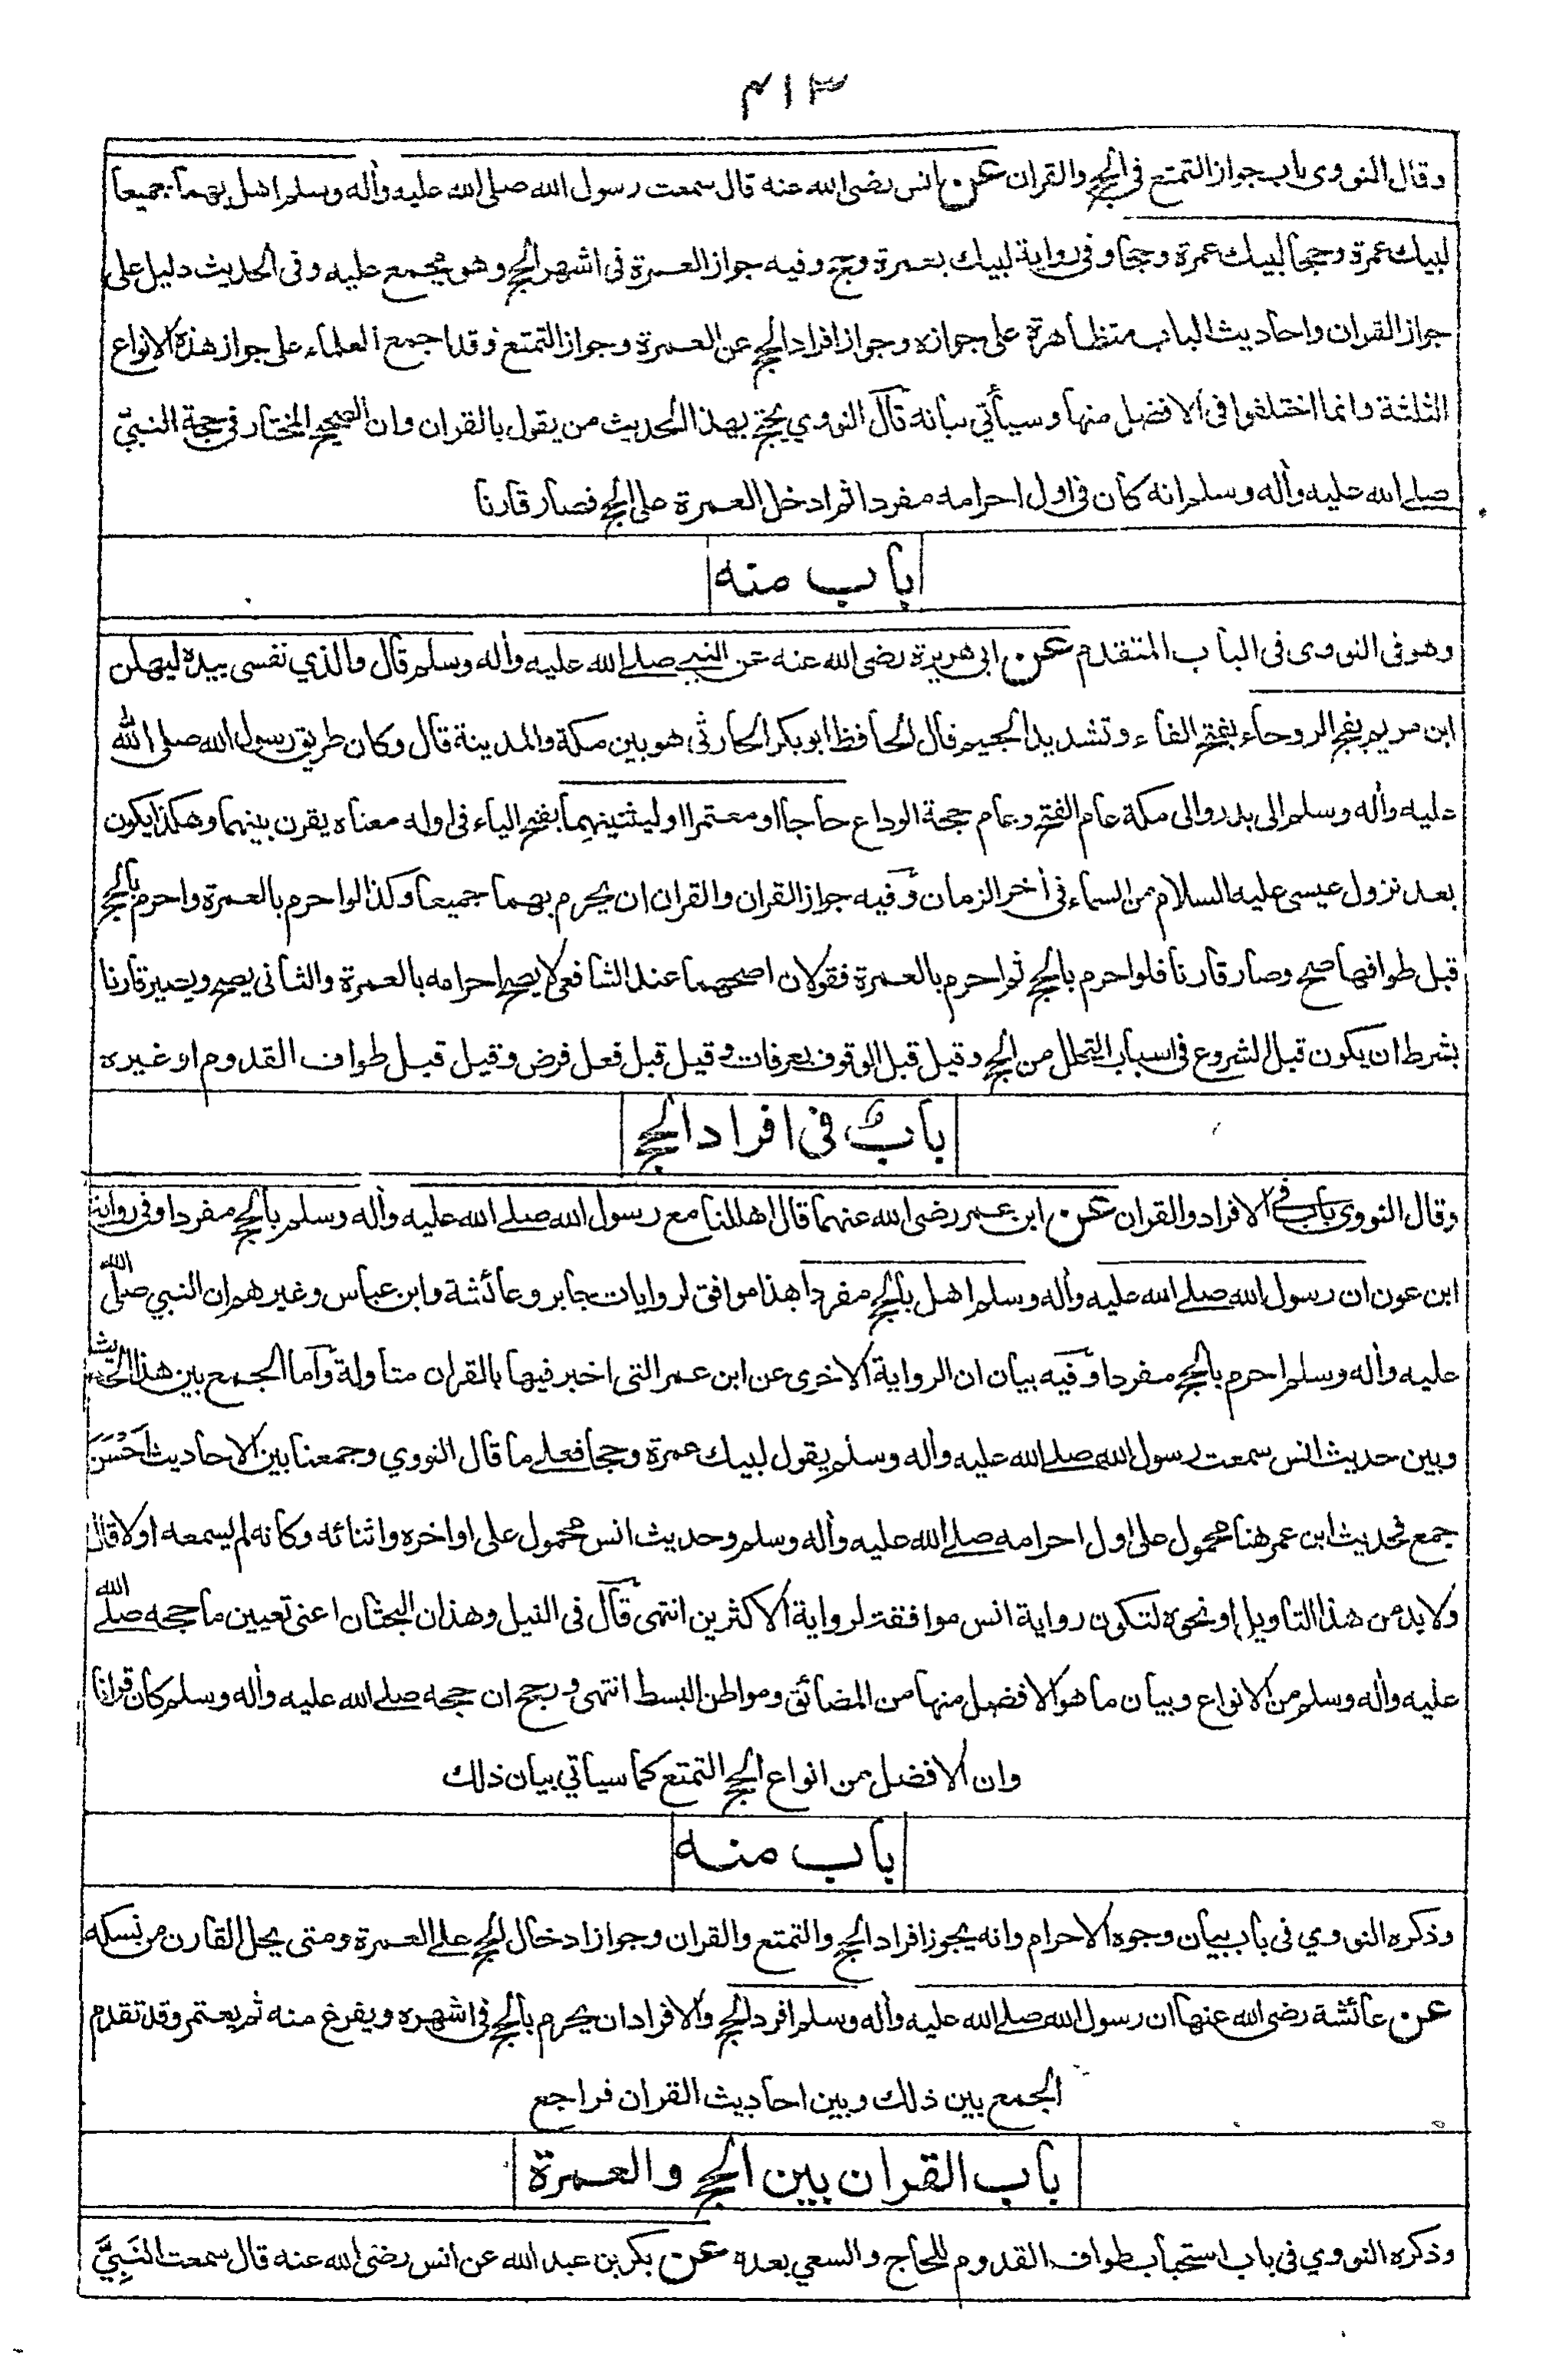 ٤١٣
وقال النووى باب جواز التمتع فى الحج والقران عن انس رضى الله عنه قال سمعت رسول الله صلى الله عليه وأله وسلم اهل بهما جميعا
لبيك عمرة وحجا لبيك عمرة وحجا وفى رواية لبيك بعمرة وحج وفيه جواز العمرة فى اشهر الحج وهو مجمع عليه وفى الحديث دليل على
جواز القران واحاديث الباب متظاهرة على جوازه وجواز افراد الحج عن العمرة وجواز التمتع وقد اجمع العلماء على جواز هذه الانواع
الثلثة وانما اختلفوا فى الافضل منها وسيأتي بيانه قال النووي يحتج بهذا الحديث من يقول بالقران وان الصحيح المختار فى حجة النبيّ
صلے الله عليه وأله وسلم انه كان فى اول احرامه مفردا ثم ادخل العمرة على الحج فصار قارنا
باب منه
وهو فى النووى فى الباب المتقدم عن ابى هريرة رضى الله عنه عن النبي صلے الله عليه وأله وسلم قال والذي نفسى بيده ليهلن
ابن مريم بفج الروحاء بفتح الفاء وتشديد الجيم قال الحافظ ابو بكر الحارثى هو بين مكة والمدينة قال وكان طريق رسول الله صلى الله
عليه وأله وسلم الى بدر والى مكة عام الفتح وعام حجة الوداع حاجا او معتمرا او ليثنينهما بفتح الياء فى اوله معناه يقرن بينهما وهكذا يكون
بعد نزول عيسى عليه السلام من السماء فى أخر الزمان وفيه جواز القران والقران ان يحرم بهما جميعا وكذا لو احرم بالعمرة واحرم بالحج
قبل طوافها صح وصار قارنا فلو احرم بالحج ثم احرم بالعمرة فقولان اصحهما عند الشافعى لا يصح احرامه بالعمرة والثانى يصح ويصير قارنا
بشرط ان يكون قبل الشروع فى اسباب التحلل من الحج وقيل قبل الوقوف بعرفات وقيل قبل فعل فرض وقيل قبل طواف القدوم او غيره
باب فى افراد الحج
وقال النووي باب فے الافراد والقران عن ابن عمر رضى الله عنهما قال اهللنا مع رسول الله صلے الله عليه وأله وسلم بالحج مفردا وفى رواية
ابن عون ان رسول الله صلے الله عليه وأله وسلم اهل بالحج مفردا هذا موافق لروايات جابر وعائشة وابن عباس وغيرهم ان النبي صلى الله
عليه وأله وسلم احرم بالحج مفردا وفيه بيان ان الرواية الاخرى عن ابن عمر التى اخبر فيها بالقران متأولة وأما الجمع بين هذا الحديث
وبين حديث انس سمعت رسول الله صلے الله عليه وأله وسلم يقول لبيك عمرة وحجا فعلے ما قال النووي وجمعنا بين الاحاديث اَحْسَنَ
جمع فحديث ابن عمر هنا محمول على اول احرامه صلے الله عليه وأله وسلم وحديث انس محمول على اواخره واثنائه وكأنه لم يسمعه اولا قال
ولا بد من هذا التاويل او نحوه لتكون رواية انس موافقة لرواية الاكثرين انتهى قال فى النيل وهذان البحثان اعنى تعيين ما حجه صلے الله
عليه وأله وسلم من الانواع وبيان ما هو الافضل منها من المضائق ومواطن البسط انتهى ورجح ان حجه صلے الله عليه وأله وسلم كان قرانا
وان الافضل من انواع الحج التمتع كما سيأتي بيان ذلك
باب منه
وذكره النووي فى باب بيان وجوه الاحرام وانه يجوز افراد الحج والتمتع والقران وجواز ادخال الحج على العمرة ومتى يحل القارن من نسكه
عن عائشة رضى الله عنها ان رسول الله صلے الله عليه وأله وسلم افرد الحج والافراد ان يحرم بالحج فى اشهره ويفرغ منه ثم يعتمر وقد تقدم
الجمع بين ذلك وبين احاديث القران فراجع
باب القران بين الحج والعمرة
وذكره النووي فى باب استحباب طواف القدوم للحاج والسعي بعده عن بكر بن عبد الله عن انس رضى الله عنه قال سمعت النَبِيَّ